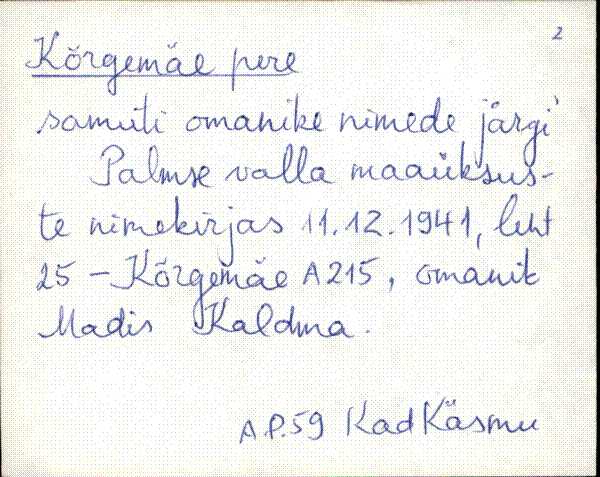 2
Kõrgemäe pere
samuti omanike nimede järgi
Palmse valla maaüksus-
te nimekirjas 11.12.1941, leht
25 - Kõrgemäe A215, omanik
Madis Kaldma.
A.P.59 Kad Käsmu